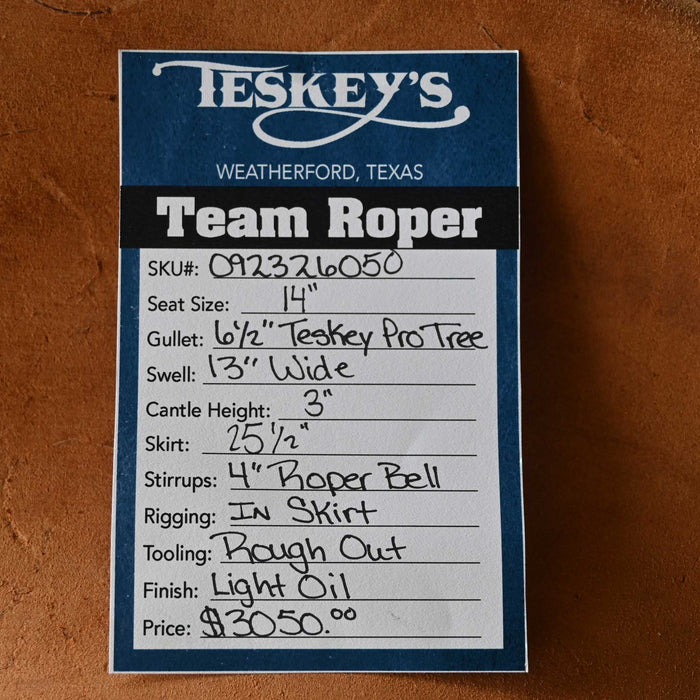 TESKEY'S
WEATHERFORD, TEXAS
Team Roper
SKU#: 092326050
Seat Size: 14"
Gullet: 6 1/2" Teskey Pro Tree
Swell: 13" Wide
Cantle Height: 3"
Skirt: 25 1/2"
Stirrups: 4" Roper Bell
Rigging: IN Skirt
Tooling: Rough Out
Finish: Light Oil
Price: $3050.00